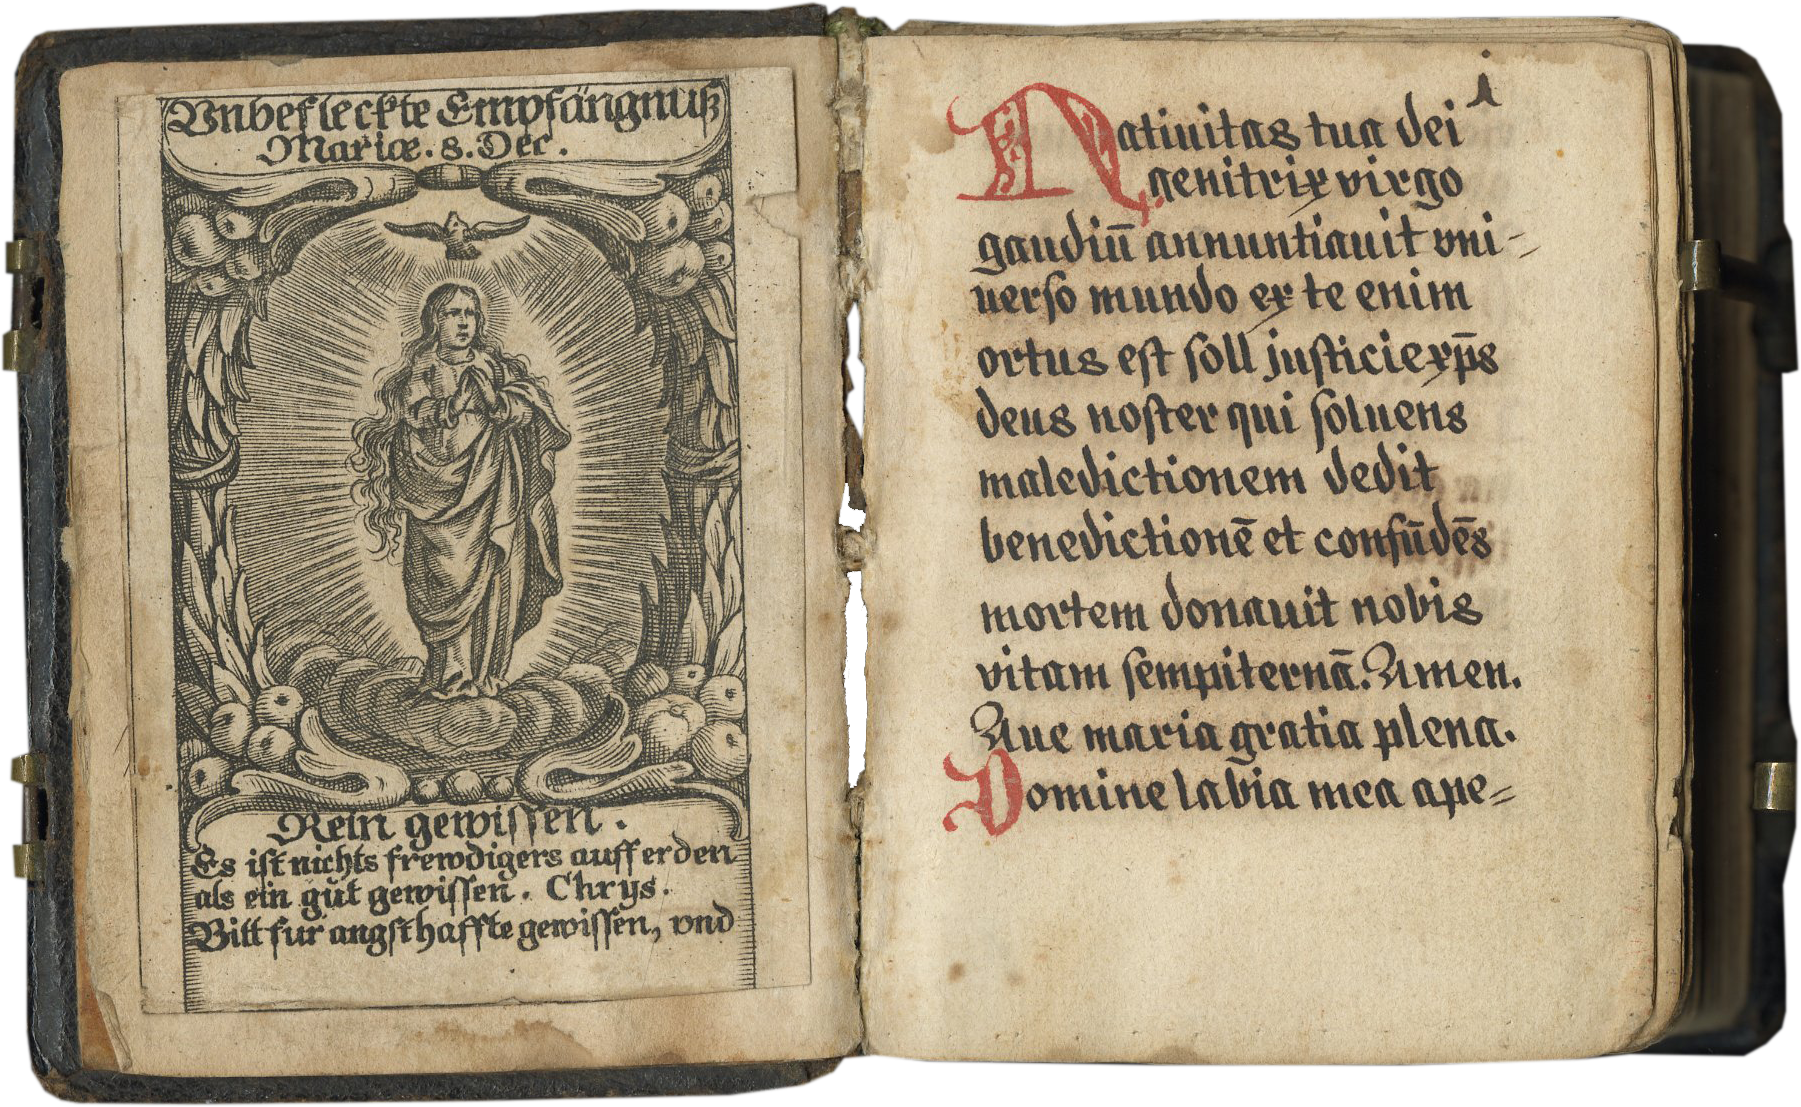 Vnbefleckte Empfängnuß
Mariæ. 8. Dec.
Rein gewissen.
Es ist nichts frewdigers auff erden
als ein gůt gewissen. Chrys.
Bitt fur angsthaffte gewissen, vnd
1
Natiuitas tua dei
genitrix virgo
gaudiū annuntiauit vni=
uerso mundo ex te enim
ortus est soll justicie xp̄s
deus noster qui soluens
maledictionem dedit
benedictionē et confūdēs
mortem donauit nobis
vitam sempiternā. Amen.
Aue maria gratia plena.
Domine labia mea ape=